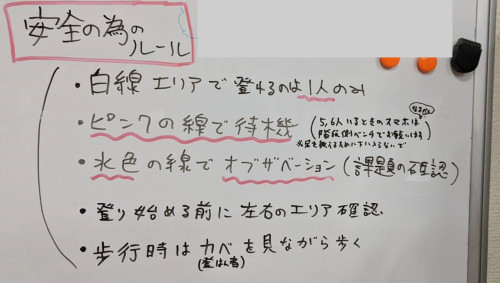 安全の為の
ルール
・白線エリアで登れるのは1人のみ
・ピンクの線で待機
(5,6人いるときのスマホは
階段側ベンチでお願いします
・水色の線でオブザベーション(課題の確認)
・登り始める前に左右のエリア確認
・歩行時はカベを見ながら歩く
(登はん者)